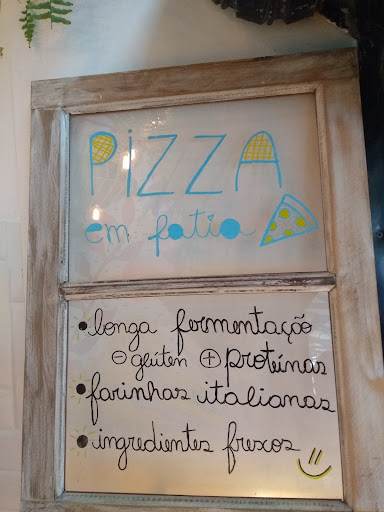 PiZZA
em fatia
longa fermentação
⊖ glúten ⊕ proteínas
farinhas italianas
ingredientes frescos